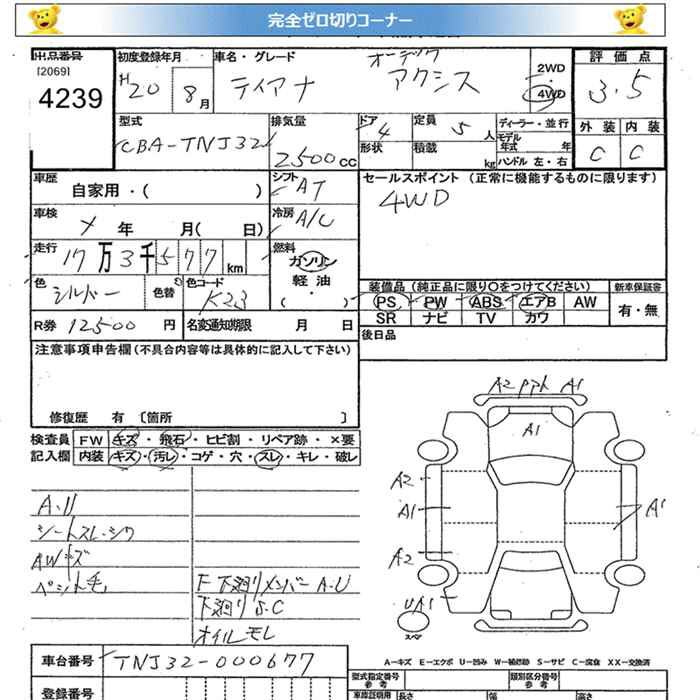 完全ゼロ切りコーナー
出品番号
[2069]
4239
初度登録年月
H20 8月
車名・グレード
ティアナ
オーテック
アクシス
2WD
・
4WD
評価点
3.5
外装 内装
C C
型式
CBA-TNJ32
排気量
2500cc
ドア
4
形状
定員
5人
積載
kg
ディーラー・並行
モデル
年式 年
ハンドル 左・右
車歴
自家用・( )
シフト
AT
セールスポイント (正常に機能するものに限ります)
4WD
車検
メ 年 月( 日)
冷房
A/C
走行
17万3千577km
燃料
ガソリン
軽油
・( )
色
シルバー
色替
色コード
K23
装備品 (純正品に限り○をつけてください)
PS PW ABS エアB AW
SR ナビ TV カワ
新車保証書
有・無
R券 12500円
名変通知期限 月 日
後日品
注意事項申告欄(不具合内容等は具体的に記入して下さい)
修復歴 有 〔箇所 〕
検査員 FW キズ・飛石・ヒビ割・リペア跡・×要
記入欄 内装 キズ・汚レ・コゲ・穴・スレ・キレ・破レ
A.U
シートスレ.シワ
AWキズ
ペット毛
F下廻リメンバーA.U
下廻リS.C
オイルモレ
A2 A1
A1
A2
A1
A1
A2
UA1
スペア
車台番号 TNJ32-000677
A-キズ E-エクボ U-凹み W-補修跡 S-サビ C-腐食 XX-交換済
登録番号
型式指定番号
参考
類別区分番号
参考
車庫証明用 長さ 幅 高さ